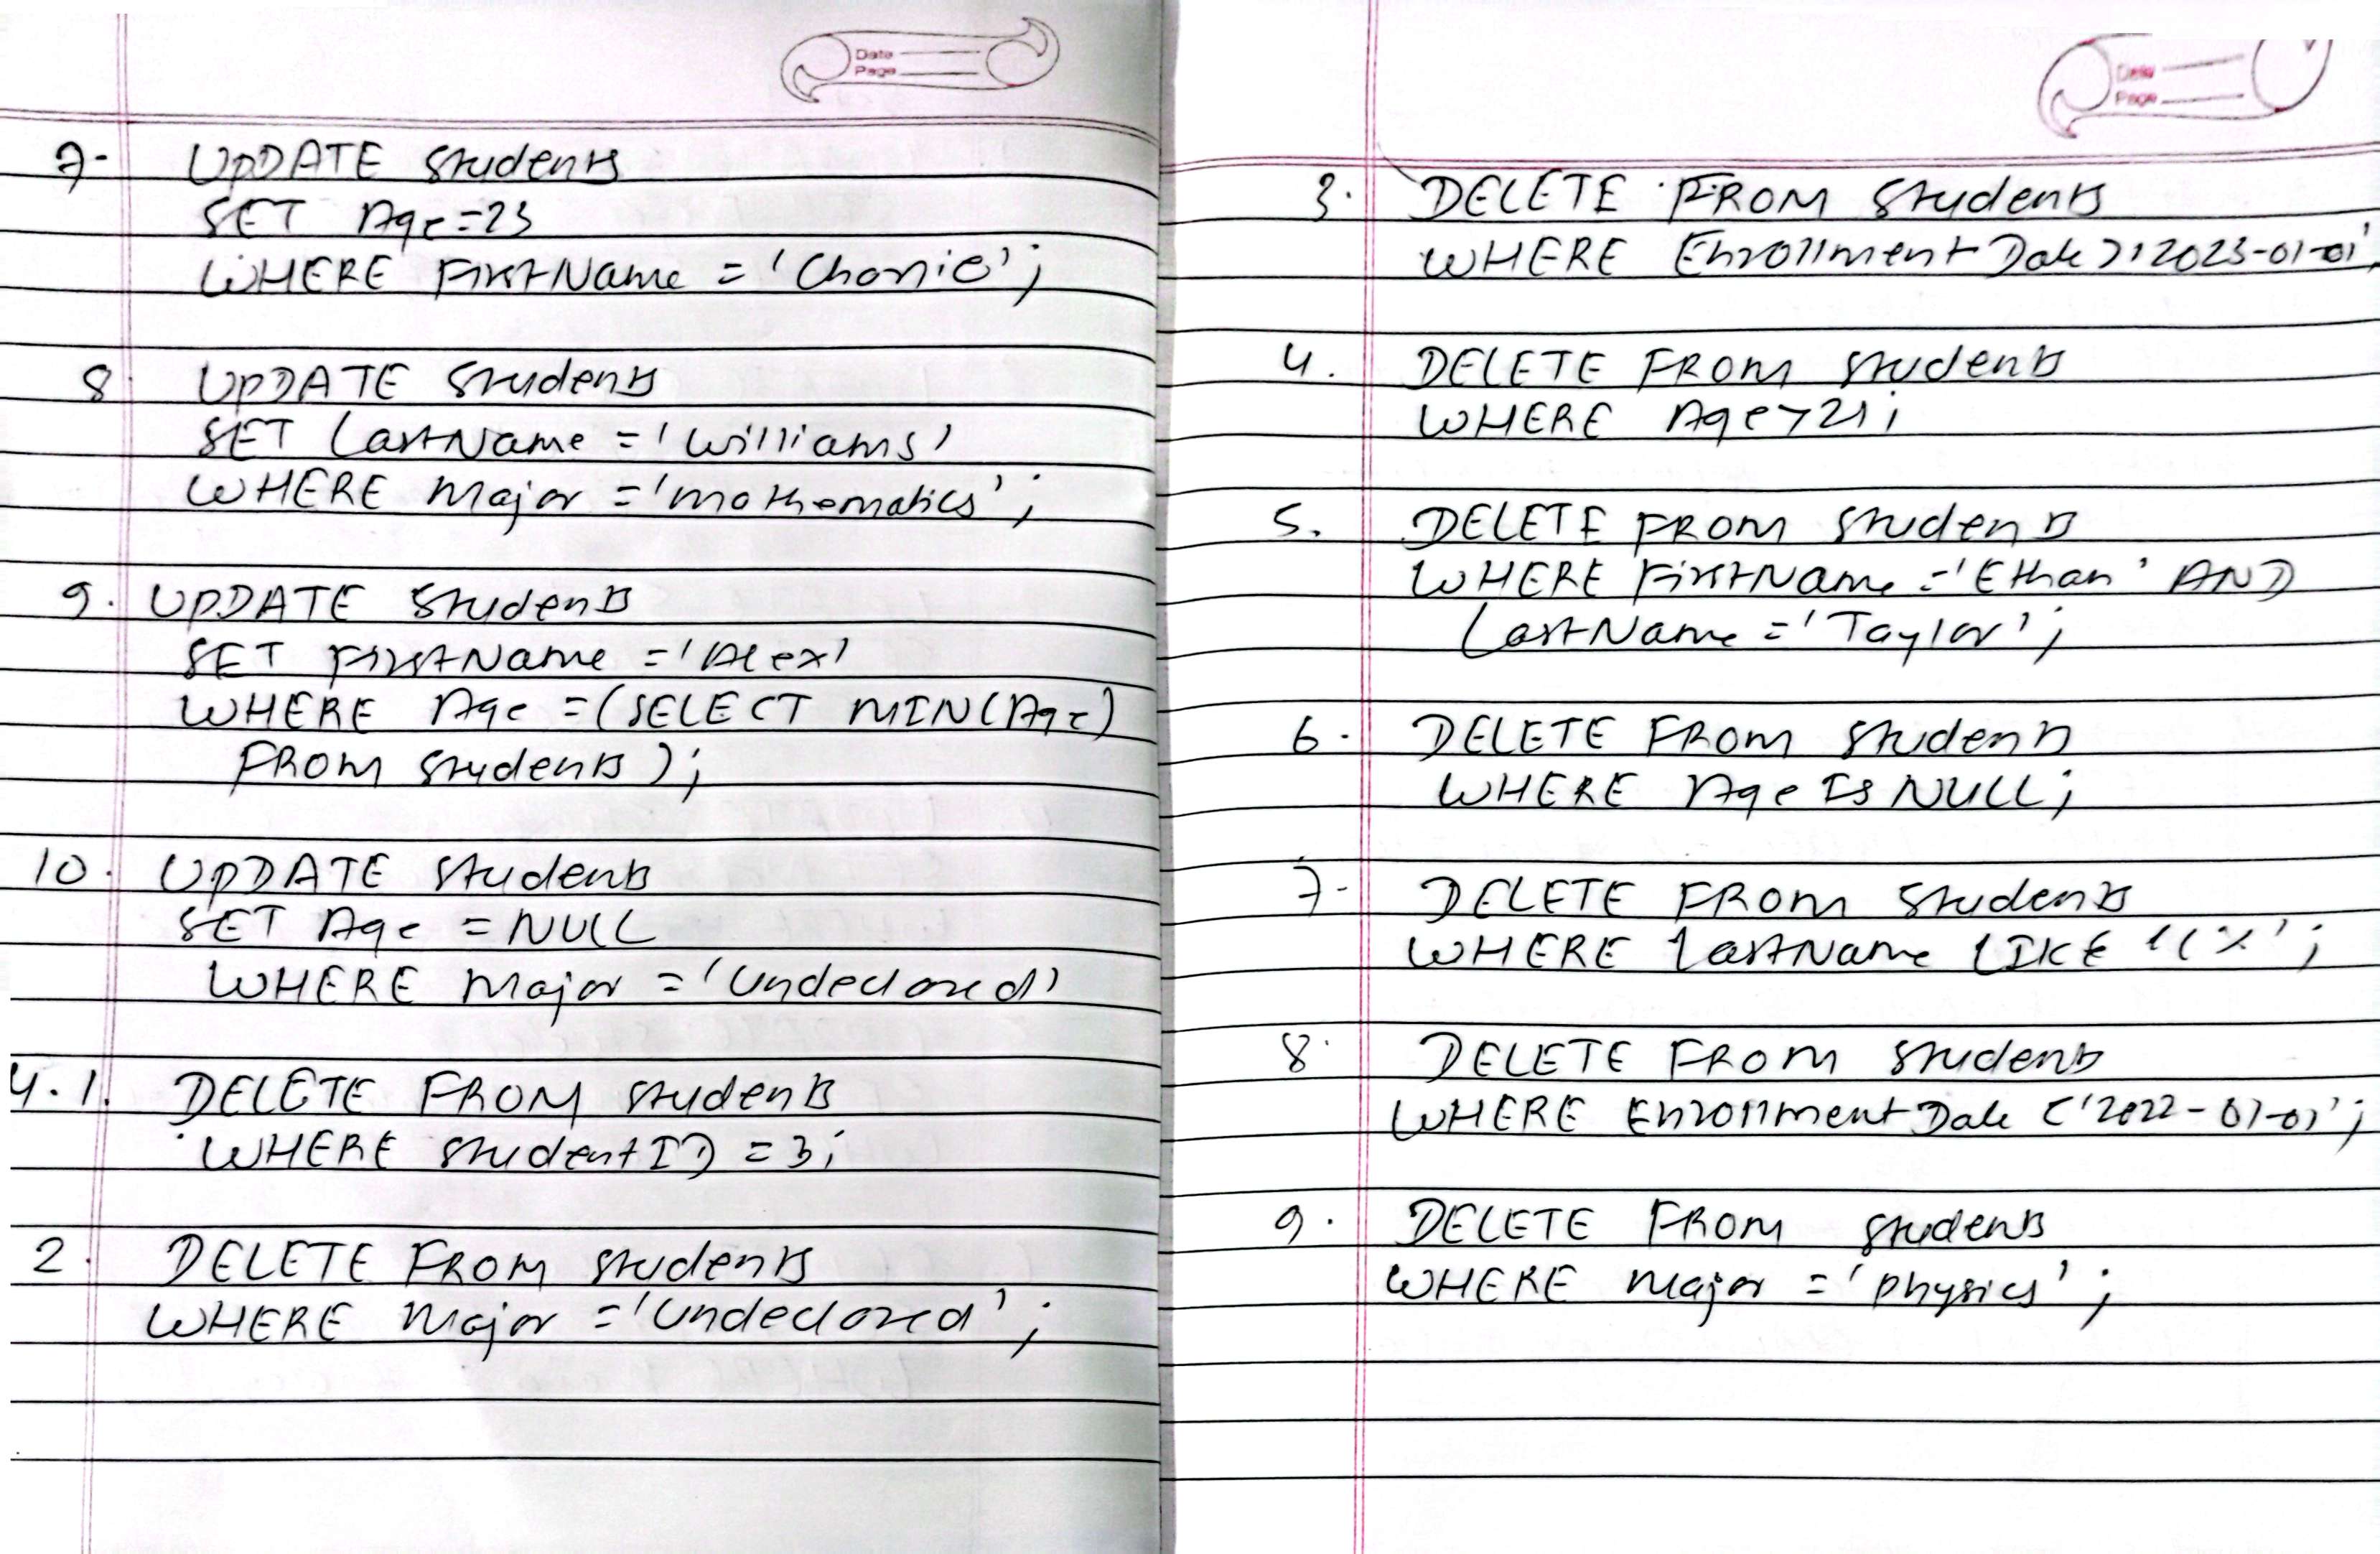 Date
Page
7- UPDATE Students
SET Age=23
WHERE FirstName = 'Charlie';
8. UPDATE Students
SET LastName = 'Williams'
WHERE Major = 'mathematics';
9. UPDATE Students
SET FirstName = 'Alex'
WHERE Age = (SELECT MIN(Age)
FROM Students);
10. UPDATE Students
SET Age = NULL
WHERE Major = 'Undeclared'
4.1. DELETE FROM Students
WHERE StudentID = 3;
2. DELETE FROM Students
WHERE Major = 'Undeclared';
Date
Page
3. DELETE FROM Students
WHERE EnrollmentDate > '2023-01-01';
4. DELETE FROM Students
WHERE Age > 21;
5. DELETE FROM Students
WHERE FirstName = 'Ethan' AND
LastName = 'Taylor';
6. DELETE FROM Students
WHERE Age IS NULL;
7- DELETE FROM Students
WHERE LastName LIKE
8. DELETE FROM Students
WHERE EnrollmentDate < '2022-01-01';
9. DELETE FROM Students
WHERE Major = 'Physics';